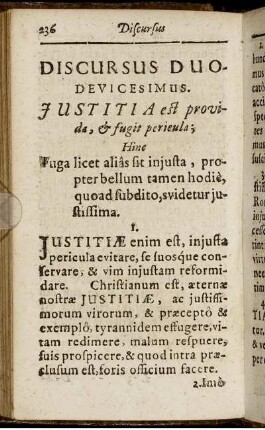 236 Discursus
DISCURSUS DUO-
DEVICESIMUS.
JUSTITIA est provi-
da, & fugit pericula;
Hinc
Fuga licet aliâs sit injusta, pro-
pter bellum tamen hodiè,
quoad subdito, svidetur ju-
stissima.
1.
JUSTITIÆ enim est, injusta
pericula evitare, se suosque con-
servare, & vim injustam reformi-
dare. Christianum est, æternæ
nostræ JUSTITIÆ, ac justissi-
morum virorum, & præceptô &
exemplô, tyrannidem effugere, vi-
tam redimere, malum respuere,
suis prospicere, & quod intra præ-
clusum est, foris officium facere.
2. Imò